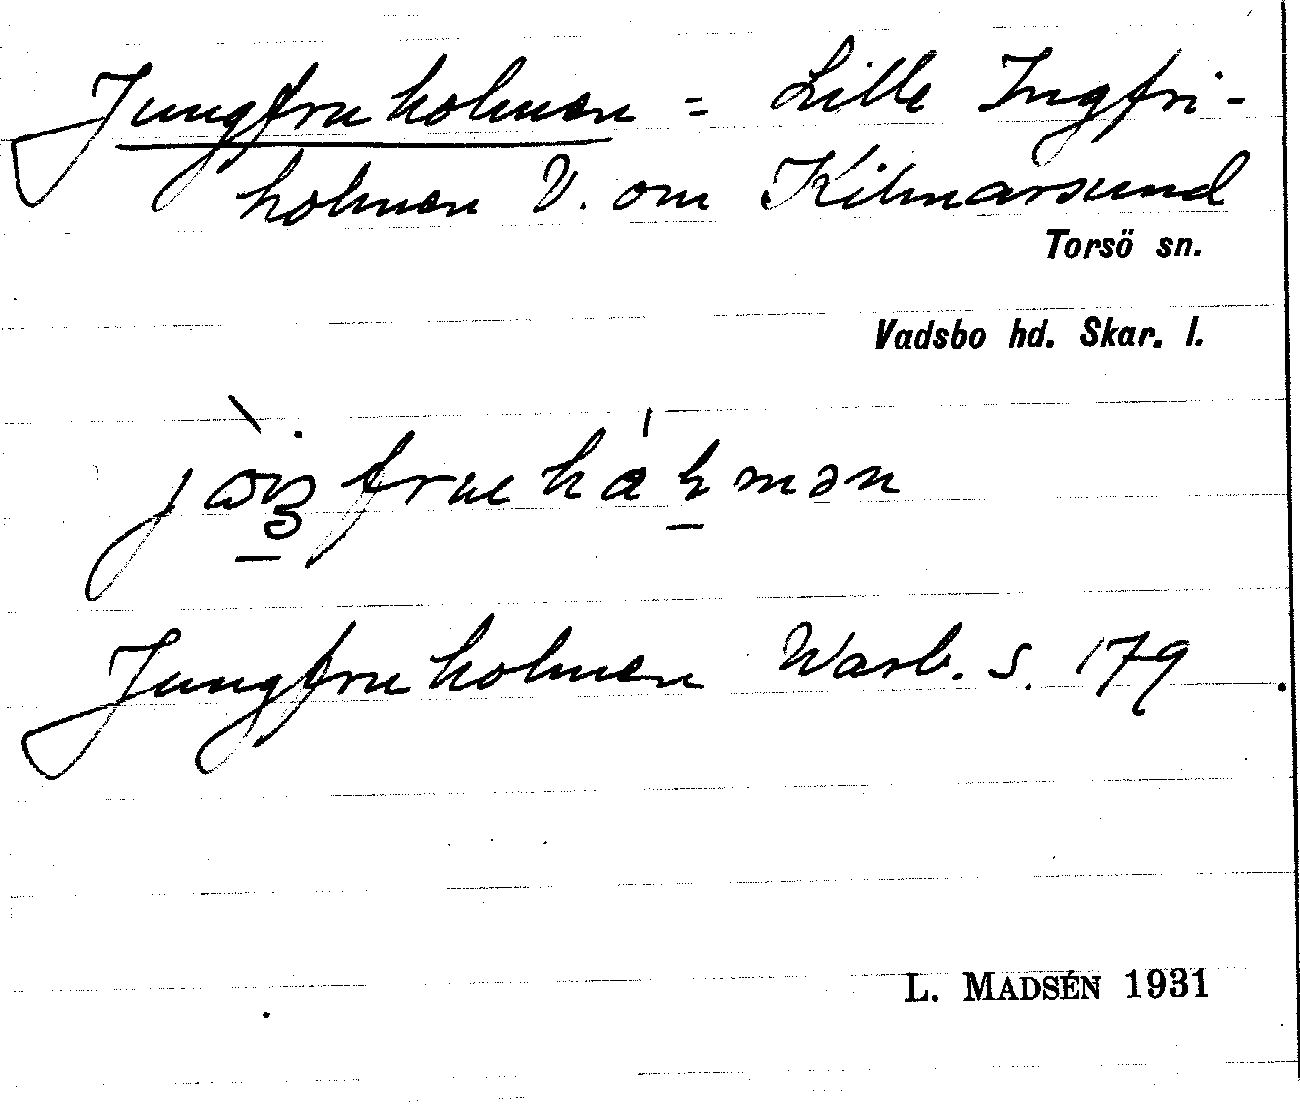 Jungfruholmen = Lille Ingfri-
holmen V. om Kilmarsund
Torsö sn.
Vadsbo hd. Skar. l.
Jungfruholmen Warb. s. 179
L. MADSÉN 1931